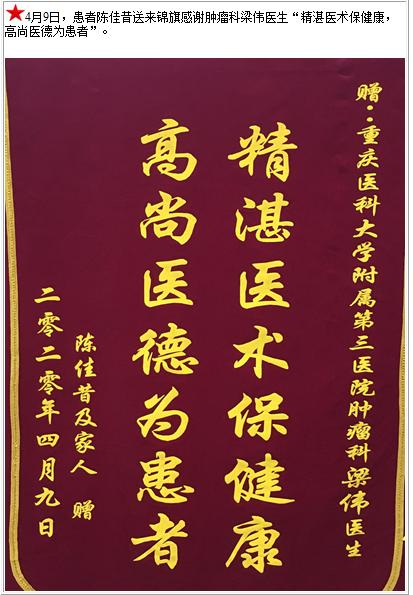 4月9日，患者陈佳昔送来锦旗感谢肿瘤科梁伟医生“精湛医术保健康，
高尚医德为患者”。
赠：重庆医科大学附属第三医院肿瘤科梁伟医生
精湛医术保健康
高尚医德为患者
陈佳昔及家人 赠
二零二零年四月九日